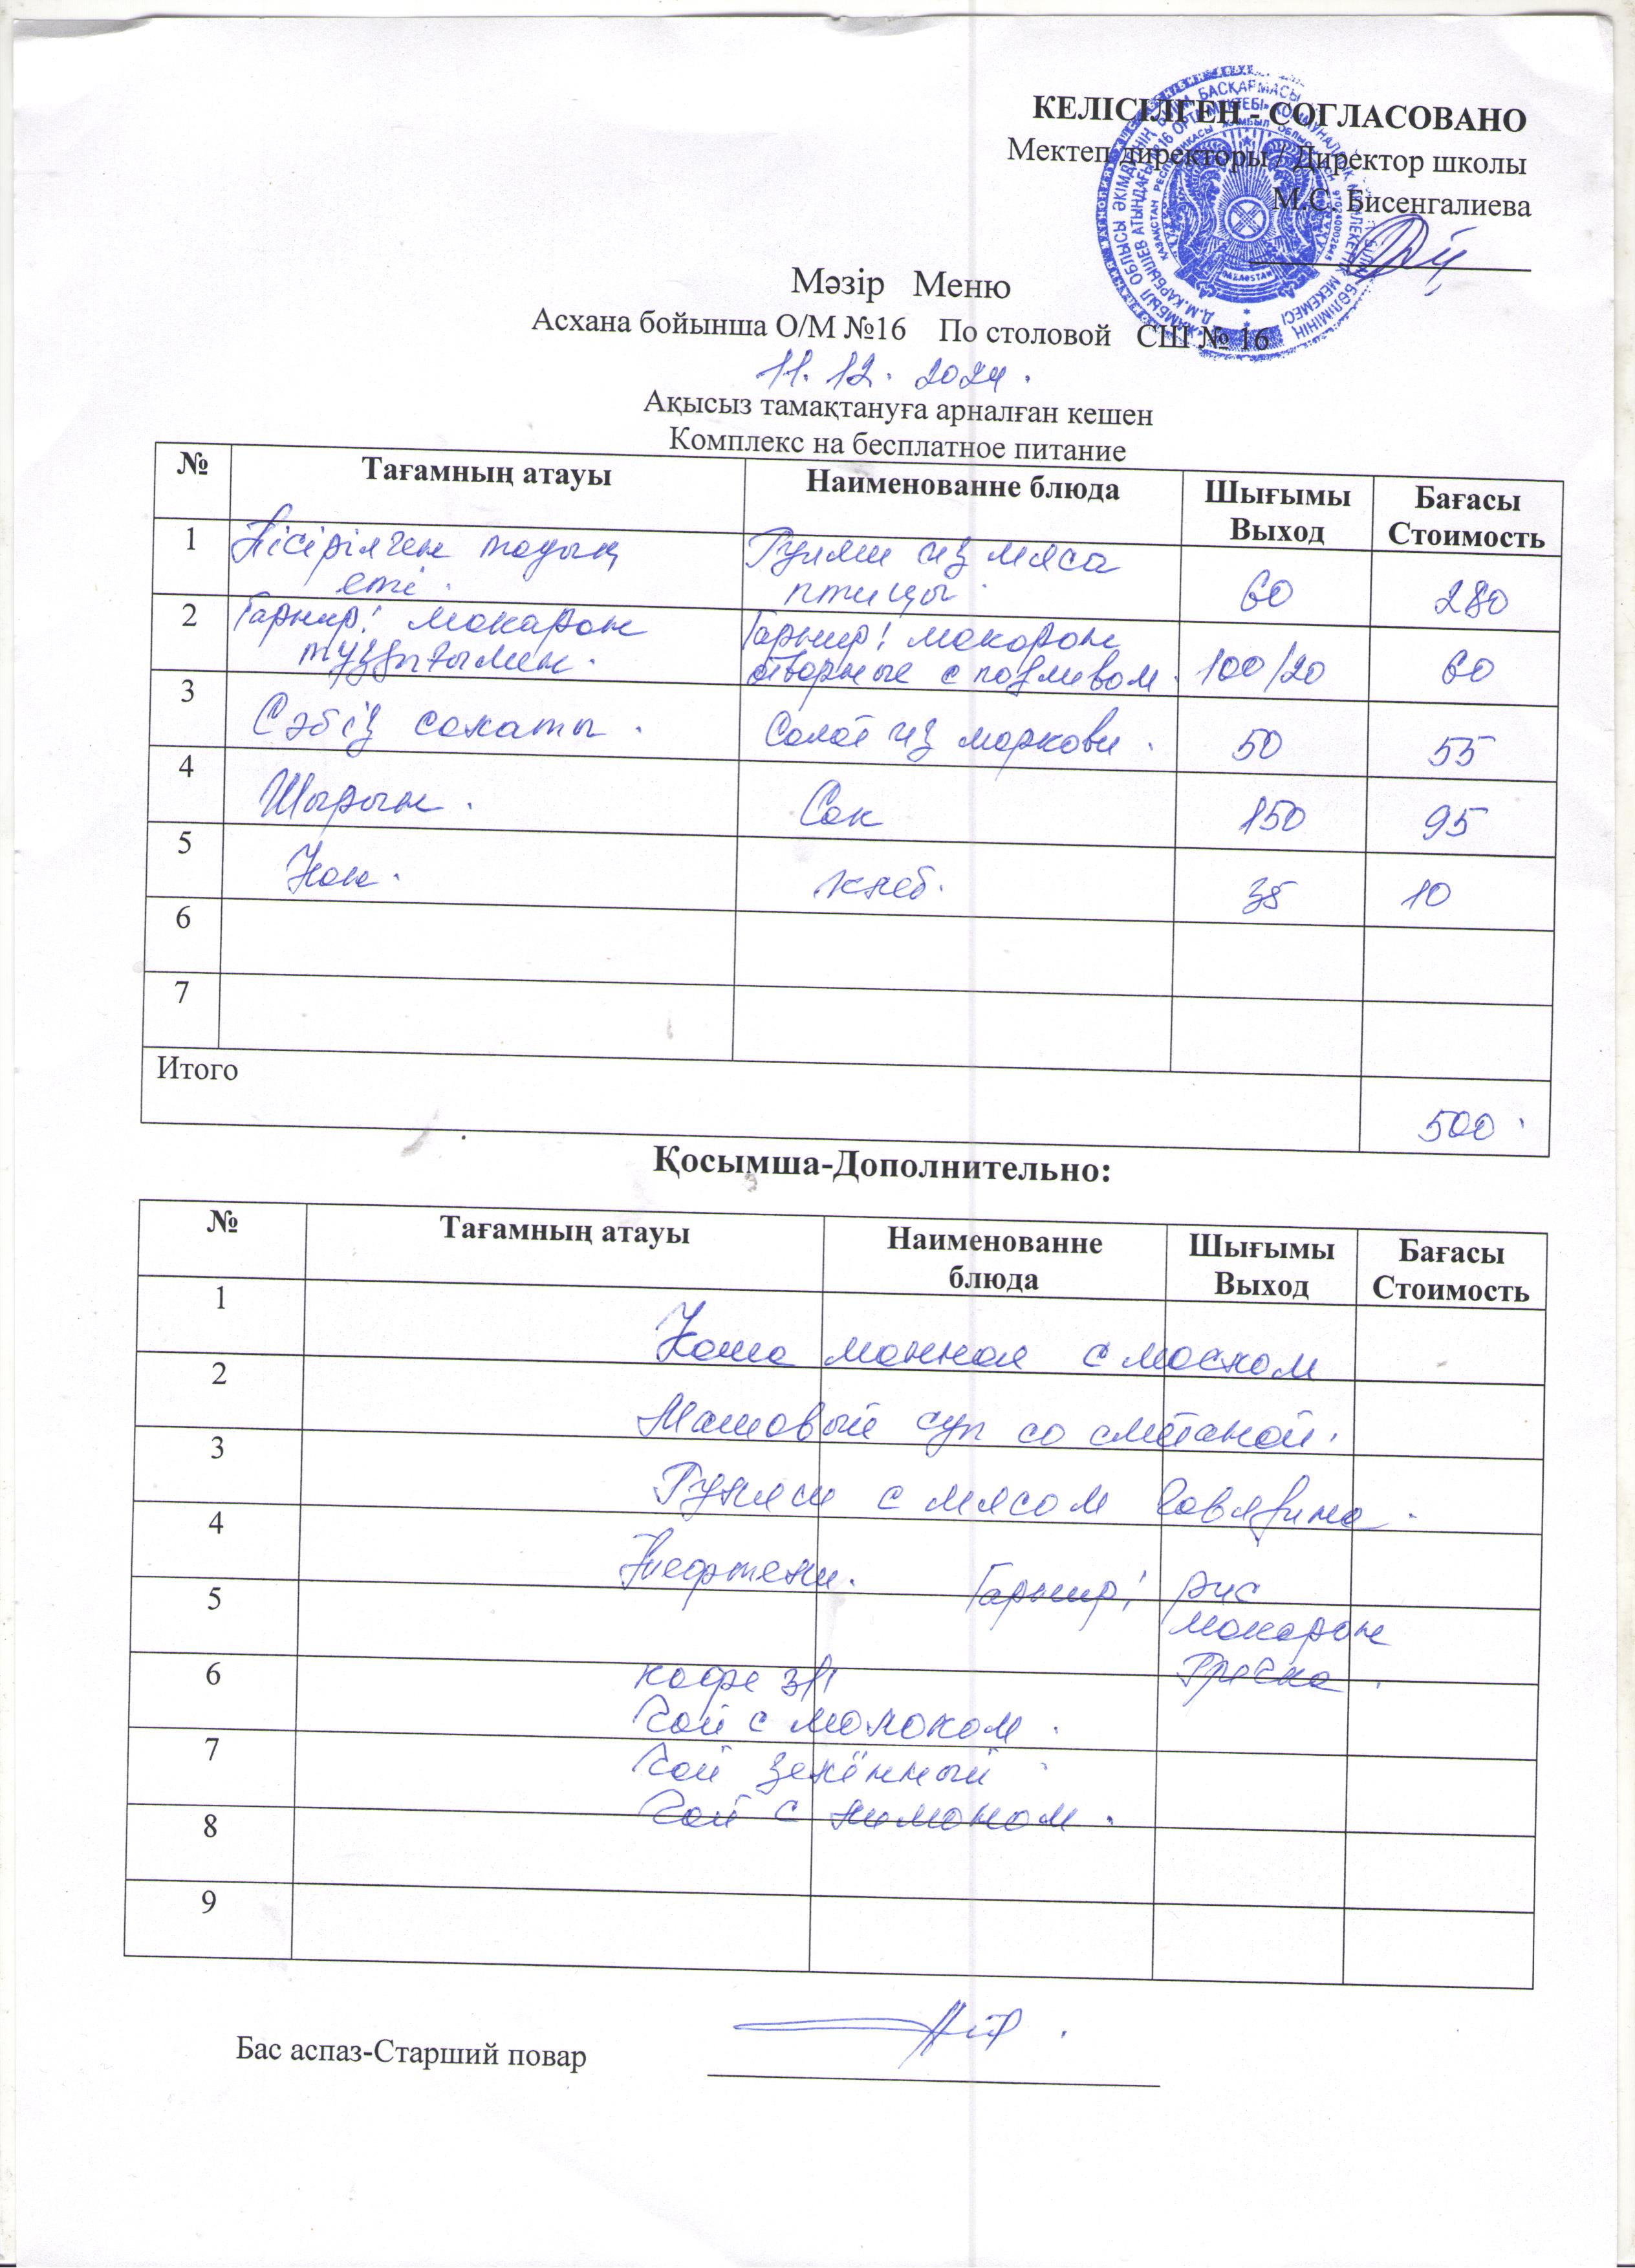 КЕЛІСІЛГЕН - СОГЛАСОВАНО
Мектеп директоры / Директор школы
М.С. Бисенгалиева
Мәзір Меню
Асхана бойынша О/М №16 По столовой СШ № 16
11.12.2024.
Ақысыз тамақтануға арналған кешен
Комплекс на бесплатное питание
№ Тағамның атауы Наименованне блюда Шығымы Выход Бағасы Стоимость
1 Пісірілген тауық еті. Гуляш из мяса птицы. 60 280
2 Гарнир: макарон тұздығымен. Гарнир: макарон отворные с подливом. 100/20 60
3 Сәбіз салаты. Салат из моркови. 50 55
4 Шырын. Сок 150 95
5 Нан. хлеб. 35 10
6
7
Итого 500.
Қосымша-Дополнительно:
№ Тағамның атауы Наименованне блюда Шығымы Выход Бағасы Стоимость
1 Каша манная с маслом
2 Машовый суп со сметаной.
3 Гуляш с мясом говядина.
4 Тефтели. Гарнир: рис
5 макарон
гречка.
6 кофе 3/1
Чай с молоком.
7 Чай зелённый.
Чай с лимоном.
8
9
Бас аспаз-Старший повар